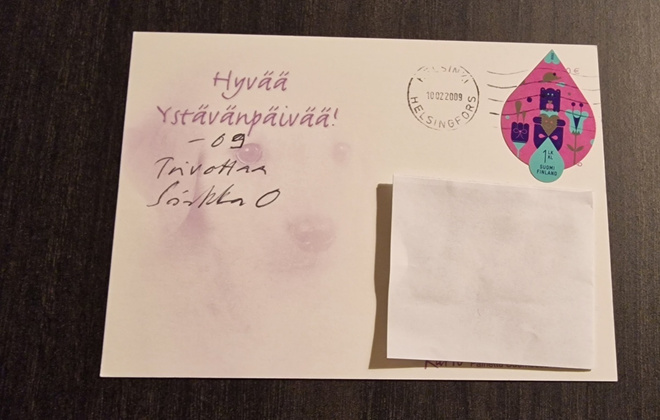 Hyvää
Ystävänpäivää!
-09
Toivottaa
Sirkka O
HELSINKI
10022009
HELSINGFORS
1 LK
KL
SUOMI
FINLAND